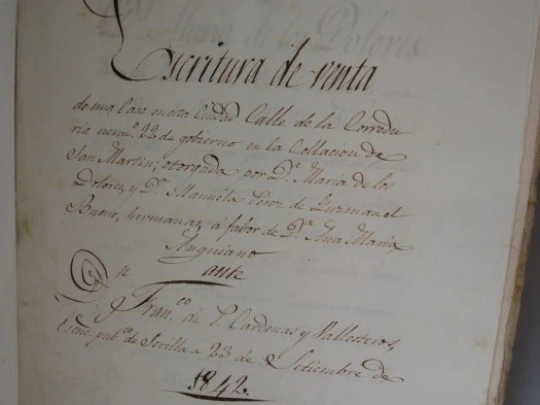 Escritura de venta
de una Casa en esta Ciudad Calle de la Corredu
ria num.º 22 de gobierno en la Collacion de
San Martin; otorgada por D.ª Maria de los
Dolores, y D.ª Manuela Perez de Guzman el
Bueno, hermanas, a fabor de D.ª Ana Maria
Anguiano
ante
Fran.co de P. Cardenas y Vallesteros,
Esno. pub.co de Sevilla a 23 de Setiembre de
1842.